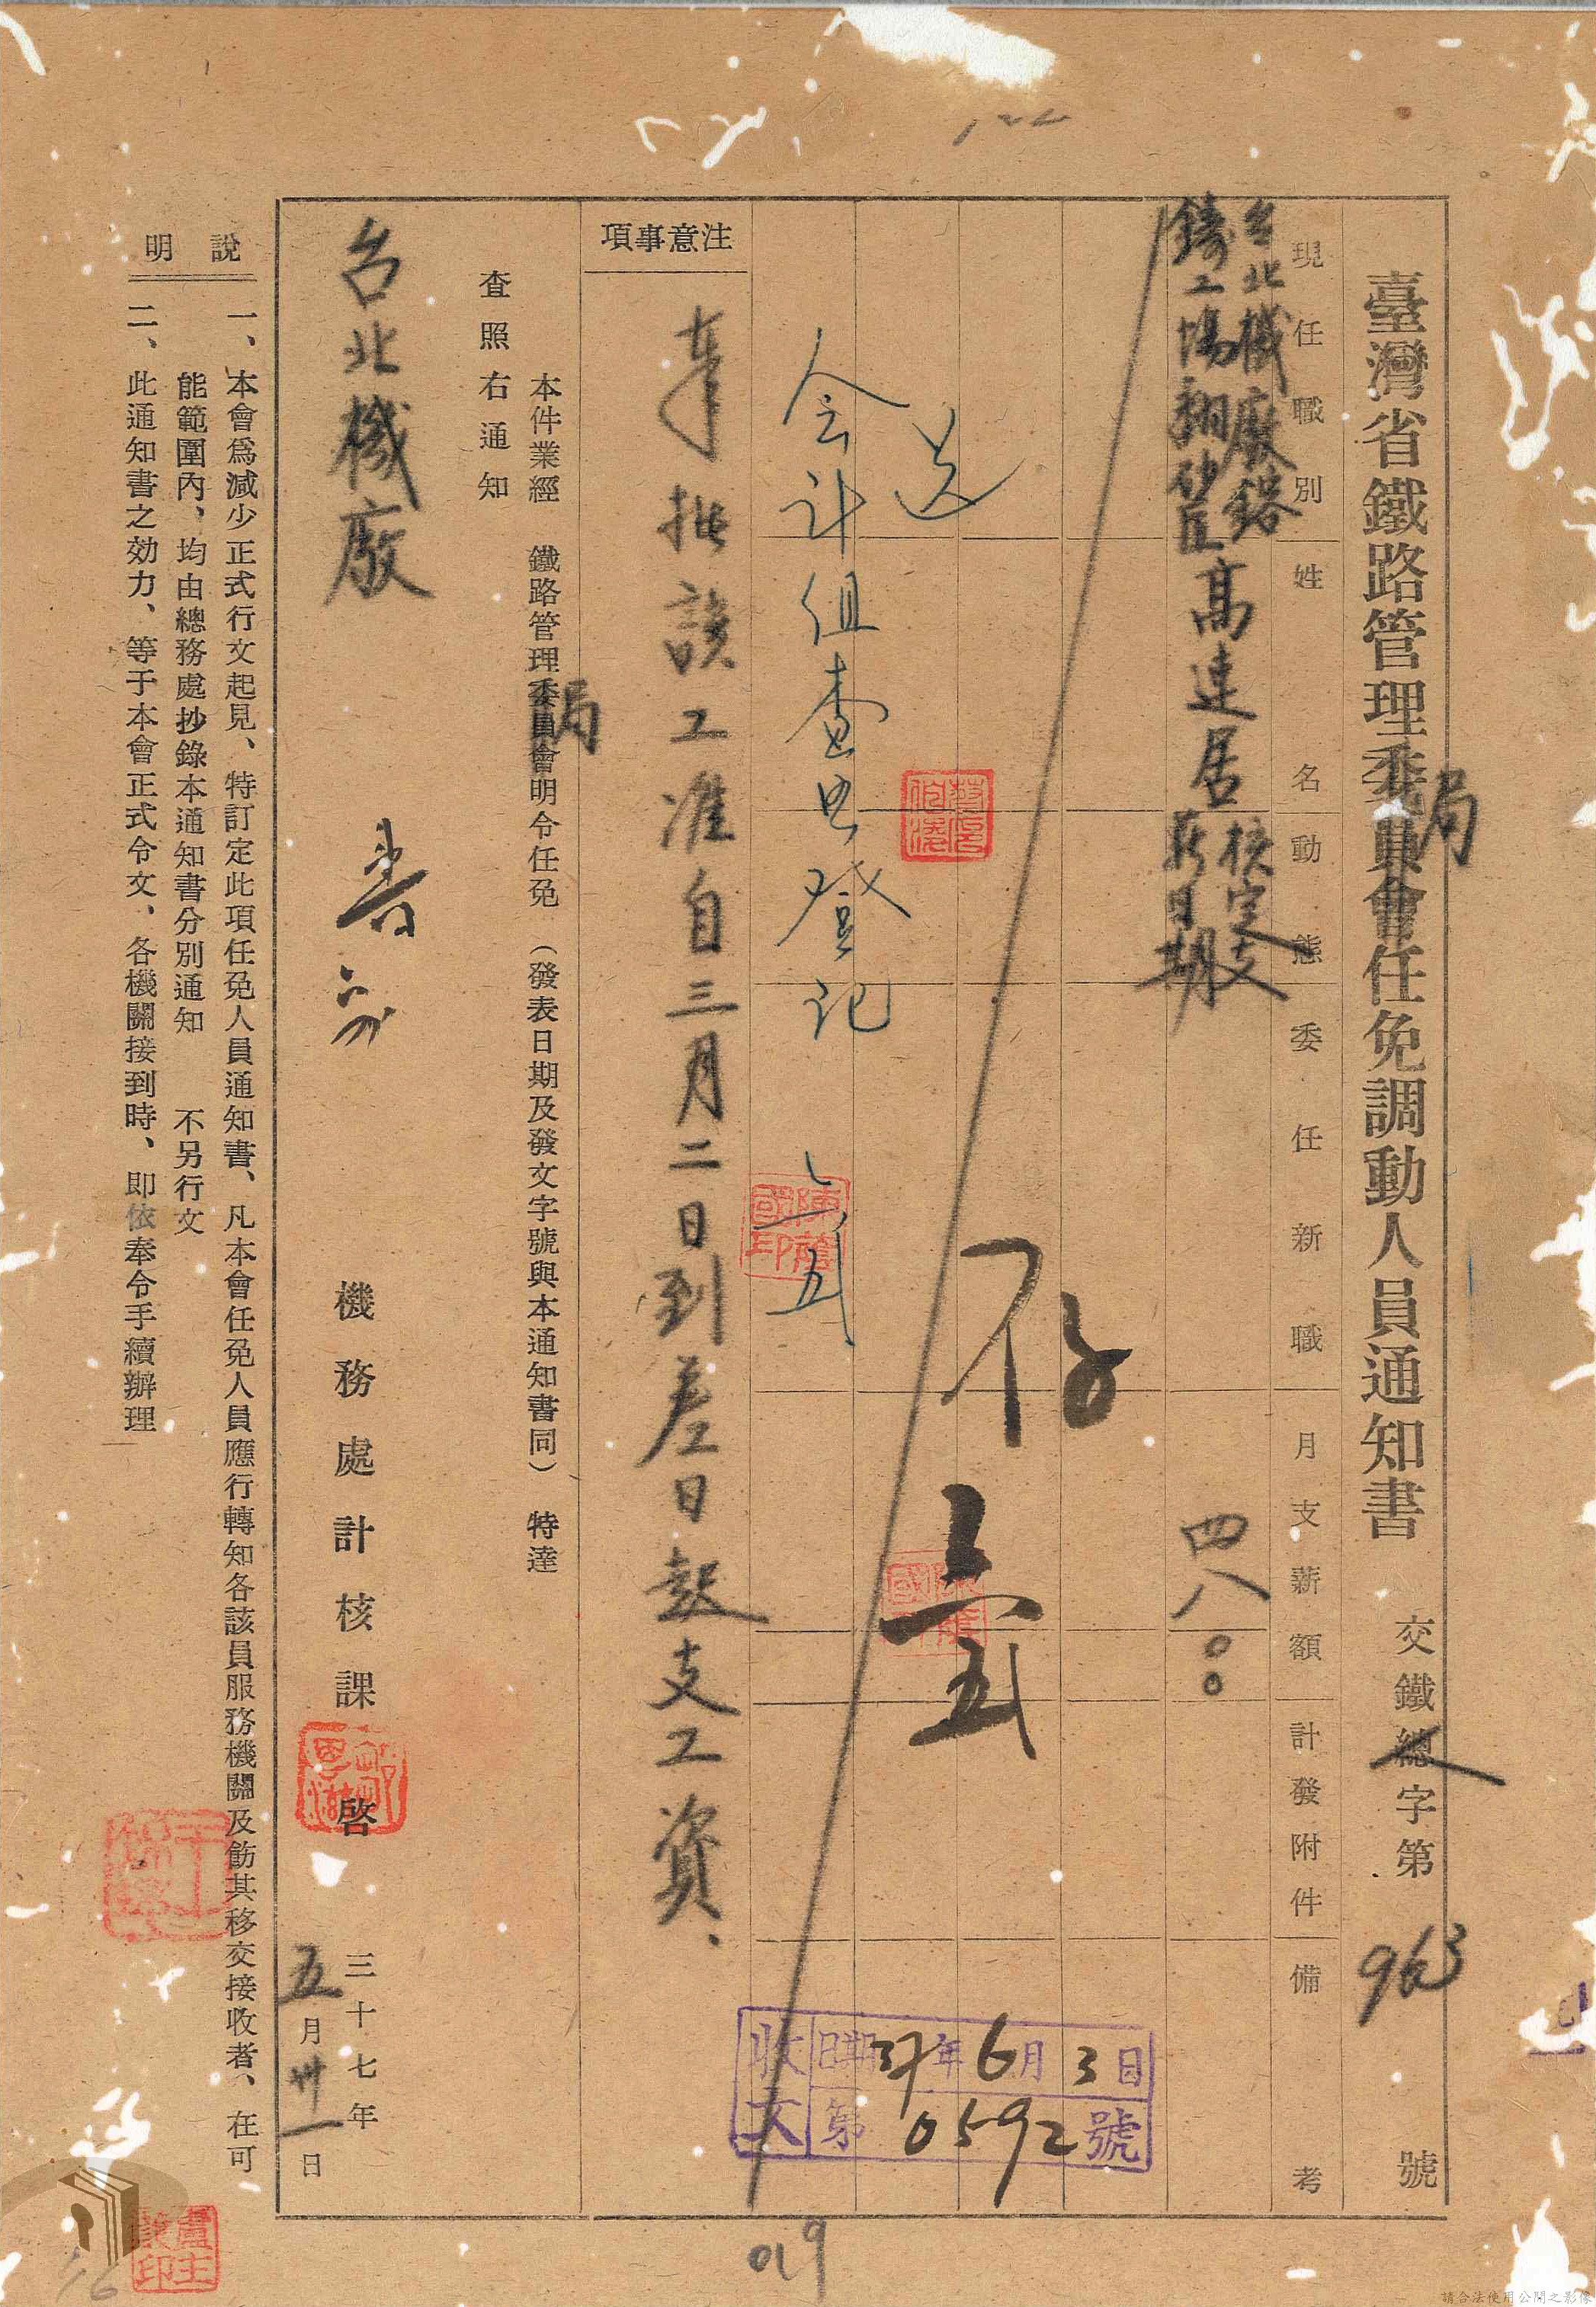 臺灣省鐵路管理委員會任免調動人員通知書 交鐵總字第963號
局
現任職別 姓名 動態 委任新職 月支薪額 計發附件 備考
台北機廠鎔
鑄工場翻砂匠
高連居
核定支
薪日期
四八〇〇
存
六五
送
会計組查照登記
六五
注意事項
奉批該工准自三月二日到差日起支工資、
本件業經 鐵路管理委員會明令任免 (發表日期及發文字號與本通知書同) 特達
局
查照右通知
台北機廠
機務處計核課啓
三十七年
五月卅一日
說明
一、本會爲減少正式行文起見、特訂定此項任免人員通知書、凡本會任免人員應行轉知各該員服務機關及飭其移交接收者、在可
能範圍內、均由總務處抄錄本通知書分別通知 不另行文
二、此通知書之効力、等于本會正式令文、各機關接到時、即依奉令手續辦理
收文
日期37年6月3日
第0592號
019
122
16
請合法使用公開之影像